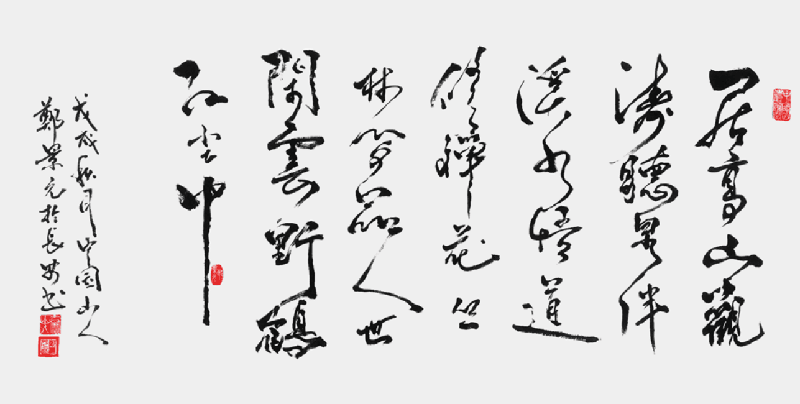 居高山觀
濤聽泉伴
溪水悟道
修禪花丛
林間品人世
閑雲野鶴
红尘中
戊戌秋月中国山人
鄭景元於長安书